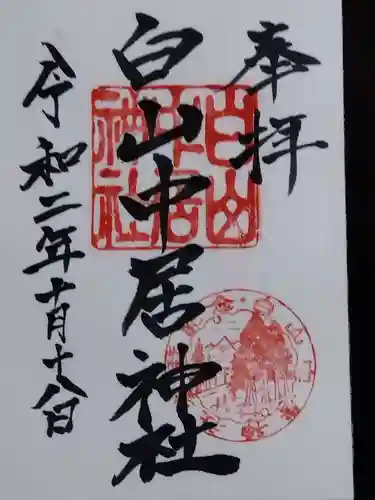 奉拝
白山中居神社
令和二年十月十八日
白山中居神社